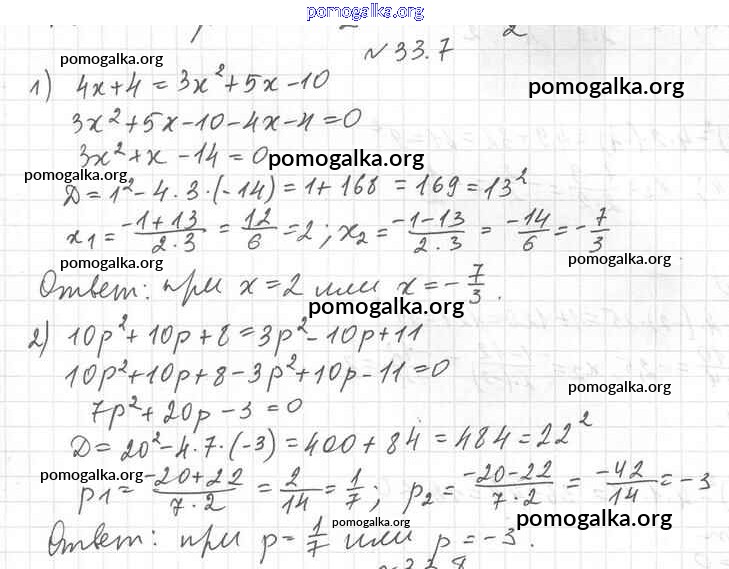 pomogalka.org
№33.7
pomogalka.org
1) 4x+4=3x²+5x-10
pomogalka.org
3x²+5x-10-4x-4=0
3x²+x-14=0
pomogalka.org
pomogalka.org
D=1²-4·3·(-14)=1+168=169=13²
x₁=\frac{-1+13}{2·3}=\frac{12}{6}=2; x₂=\frac{-1-13}{2·3}=\frac{-14}{6}=-\frac{7}{3}
pomogalka.org
pomogalka.org
Ответ: при x=2 или x=-\frac{7}{3}.
pomogalka.org
2) 10p²+10p+8=3p²-10p+11
10p²+10p+8-3p²+10p-11=0
pomogalka.org
7p²+20p-3=0
D=20²-4·7·(-3)=400+84=484=22²
pomogalka.org
p₁=\frac{-20+22}{7·2}=\frac{2}{14}=\frac{1}{7}; p₂=\frac{-20-22}{7·2}=\frac{-42}{14}=-3
pomogalka.org
pomogalka.org
Ответ: при p=\frac{1}{7} или p=-3.